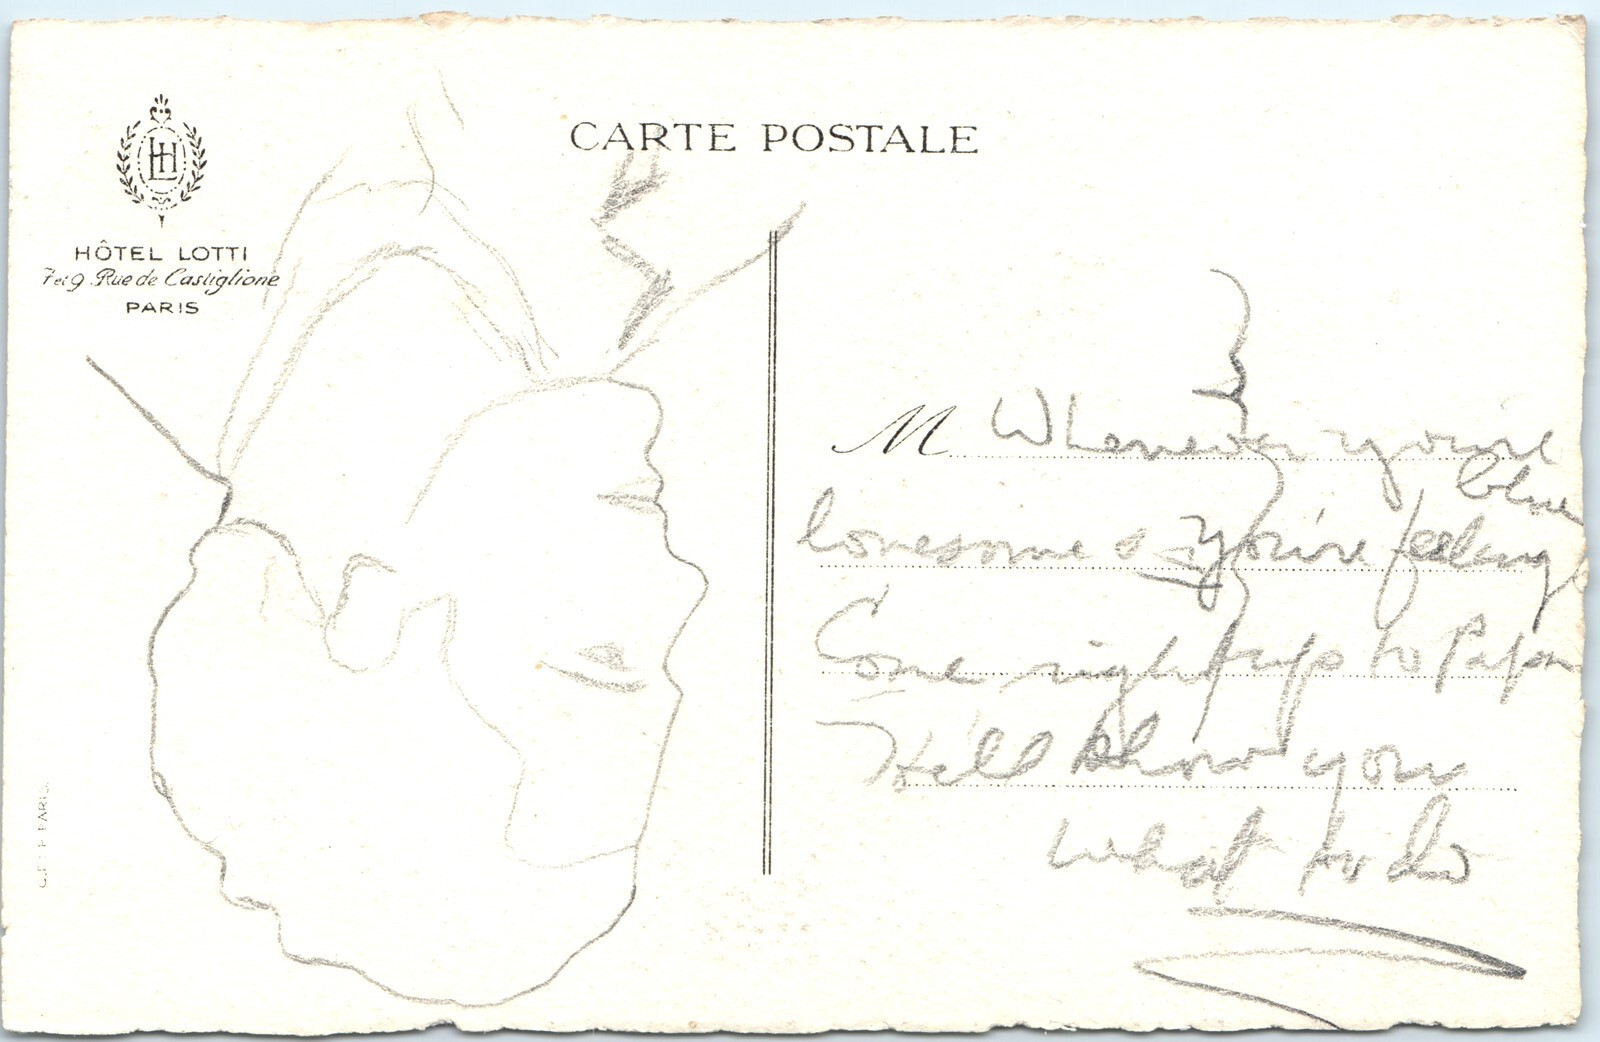 CARTE POSTALE
LH
HÔTEL LOTTI
7 et 9 Rue de Castiglione
PARIS
M Whenever you're
blue
lonesome & you're feeling
Come right up to Papa
He'll show you
what to do